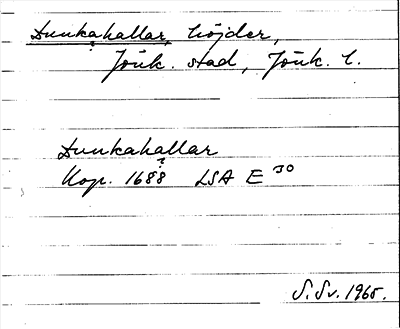 Dunkahallar, höjder,
Jönk. stad, Jönk. l.
Dunkahallar
Kop. 1688 LSA E 30
S. Sv. 1965.